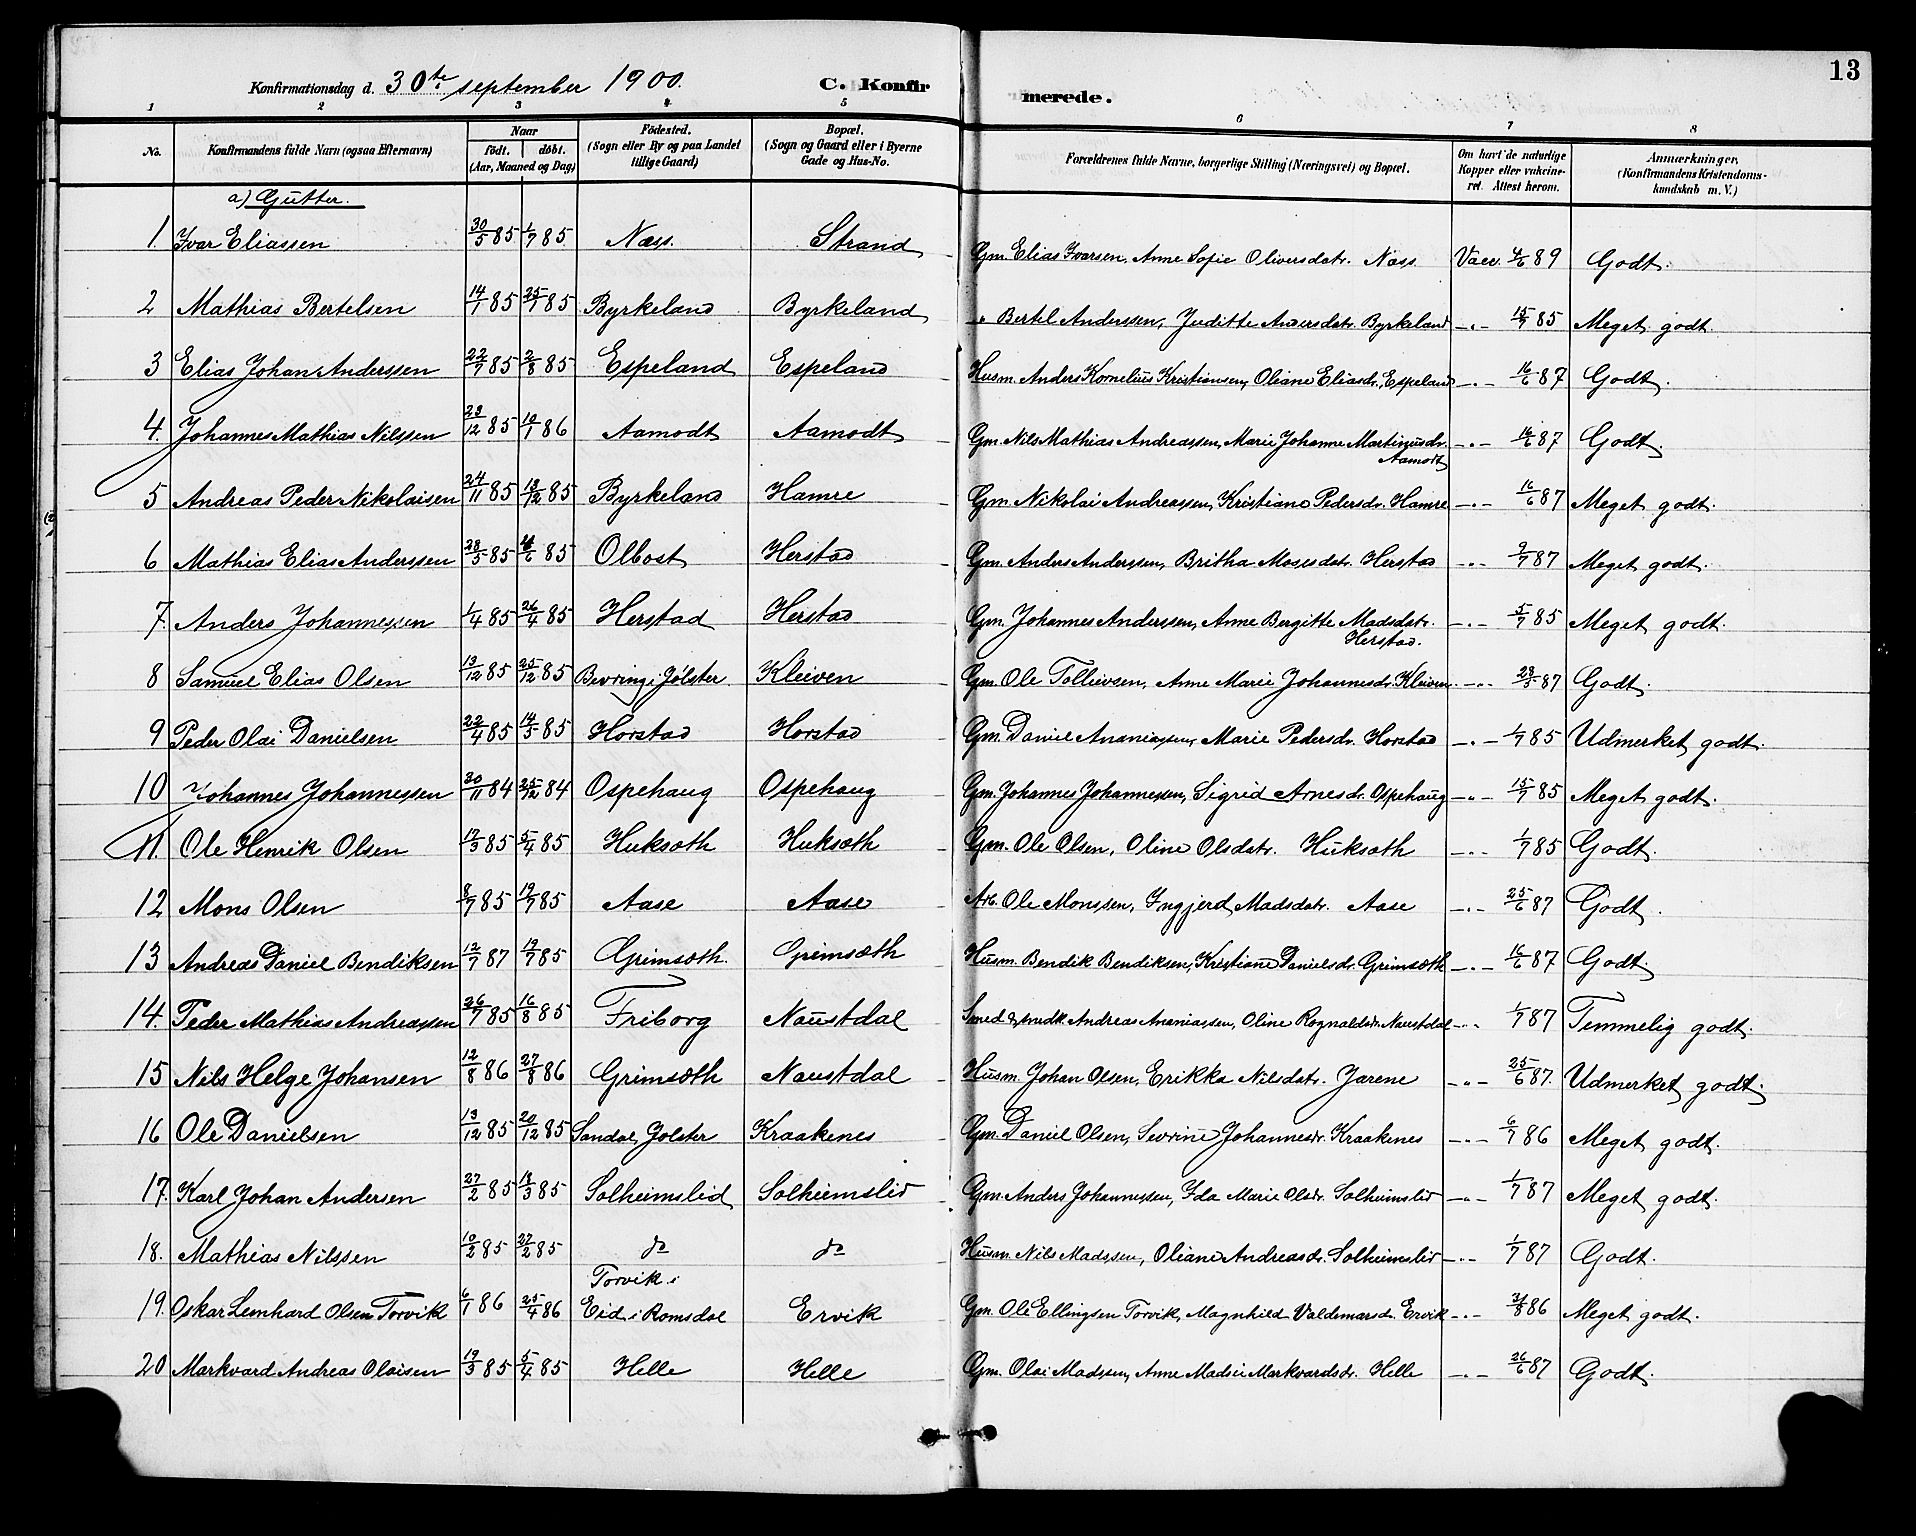 13
Konfirmationsdag d. 30te september 1900. C. Konfirmerede.
1 2 3 4 5 6 7 8
No. Konfirmandens fulde Navn (ogsaa Efternavn) Naar födt. döbt. (Aar, Maaned og Dag) Födested. (Sogn eller By og paa Landet tillige Gaard) Bopæl. (Sogn og Gaard eller i Byerne Gade og Hus-No. Forældrenes fulde Navne, borgerlige Stilling (Næringsvei) og Bopæl. Om havt de naturlige Kopper eller vakcineret. Attest herom. Anmærkninger. (Konfirmandens Kristendomskundskab m. V.)
a) Gutter.
1. Ivar Eliassen 30/5 85 1/7 85 Næss. Strand Gm. Elias Ivarsen, Anne Sofie Oliversdatr. Næss. Vacc. 4/6 89 Godt.
2 Mathias Bertelsen 14/1 85 25/1 85 Byrkeland Byrkeland " Bertel Anderssen, Juditte Andersdatr. Byrkeland -"- 15/7 85 Meget godt.
3 Elias Johan Anderssen 22/7 85 2/8 85 Espeland Espeland Husm. Anders Kornelius Kristiansen, Oliane Eliasdr., Espeland -"- 16/6 87 Godt.
4. Johannes Mathias Nilssen 23/12 85 10/1 86 Aamodt Aamodt Gm. Nils Mathias Andreassen, Marie Johanne Martinusdr. Aamodt -"- 16/6 87 Godt.
5 Andreas Peder Nikolaisen 24/11 85 13/12 85 Byrkeland Hamre Gm. Nikolai Andreassen, Kristiane Pedersdr. Hamre -"- 16/6 87 Meget godt.
6 Mathias Elias Anderssen 28/5 85 4/6 85 Olbost Herstad Gm. Anders Anderssen, Britha Mosesdatr. Herstad -"- 9/7 87 Meget godt.
7. Anders Johannessen 1/4 85 26/4 85 Herstad Herstad Gm. Johannes Anderssen, Anne Bergitte Madsdatr. Herstad. -"- 5/7 85 Meget godt.
8 Samuel Elias Olsen 13/12 85 25/12 85 Bevring i Jölster Kleiven Gm. Ole Tolleivsen, Anne Marie Johannesdr. Kleiven -"- 23/5 87 Godt.
9 Peder Olai Danielsen 22/4 85 14/5 85 Horstad Horstad Gm. Daniel Ananiassen, Marie Pedersdr. Horstad -"- 1/7 85 Udmerket godt.
10 Johannes Johannessen 30/11 84 25/12 84 Ospehaug Ospehaug Gm. Johannes Johannessen, Sigrid Arnesdr. Ospehaug -"- 15/7 85 Meget godt.
11. Ole Henrik Olsen 12/3 85 5/4 85 Huksæth Huksæth Gm. Ole Olsen, Oline Olsdatr. Huksæth -"- 1/7 85 Godt.
12 Mons Olsen 8/7 85 19/7 85 Aase Aase Arb. Ole Monssen, Ingjerd Madsdatr. Aase -"- 25/6 87 Godt.
13 Andreas Daniel Bendiksen 12/7 87 19/7 85 Grimsæth. Grimsæth Husm. Bendik Bendiksen, Kristiane Danielsdr. Grimsæth -"- 16/6 87 Godt.
14. Peder Mathias Andreassen 26/7 85 16/8 85 Friborg Naustdal Smed & Andreas Ananiassen, Oline Rognaldsdr. Naustdal -"- 1/7 87 Temmelig godt.
15 Nils Helge Johansen 12/8 86 27/8 86 Grimsæth Naustdal Husm. Johan Olsen, Erikka Nilsdatr. Jarene -"- 25/6 87. Udmerket godt.
16 Ole Danielsen 13/12 85 20/12 85 Sandal, Jolster Kraakenes Gm. Daniel Olsen, Sevrine Johannesdr. Kraakenes -"- 6/7 86 Meget godt.
17. Karl Johan Andersen 27/2 85 18/3 85 Solheimslid Solheimslid Gm. Anders Johannessen, Ida Marie Olsdr. Solheimslid -"- 1/7 87 Meget godt.
18. Mathias Nilssen 10/2 85 27/2 85 do do Husm. Nils Madssen, Oliane Andreasdr. Solheimslid -"- 1/7 87 Godt.
19. Oskar Lenhard Olsen Torvik 6/1 86 25/4 86 Torvik i Eid i Romsdal Ervik Gm. Ole Ellingsen Torvik, Magnhild Valdemarsd. Ervik -"- 31/8 86 Meget godt.
20 Markvard Andreas Olaisen 19/3 85 5/4 85 Helle Helle Gm. Olai Madssen, Anne Madsie Markvardsdr. Helle -"- 26/6 87 Godt.